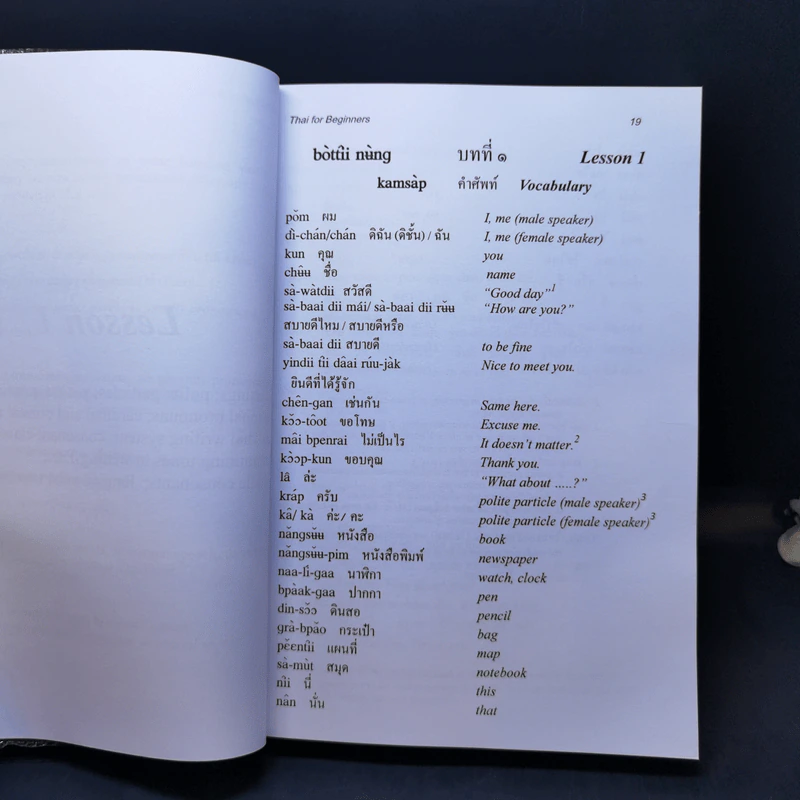 Thai for Beginners 19
bòttîi nʉ̀ng บทที่ ๑ Lesson 1
kamsàp คำศัพท์ Vocabulary
pǒm ผม I, me (male speaker)
dì-chán/chán ดิฉัน (ดิชั้น) / ฉัน I, me (female speaker)
kun คุณ you
chʉ̂ʉ ชื่อ name
sà-wàtdii สวัสดี “Good day”¹
sà-baai dii mái/ sà-baai dii rʉ̌ʉ “How are you?”
สบายดีไหม / สบายดีหรือ
sà-baai dii สบายดี to be fine
yindii tîi dâai rúu-jàk Nice to meet you.
ยินดีที่ได้รู้จัก
chên-gan เช่นกัน Same here.
kɔ̌ɔ-tôot ขอโทษ Excuse me.
mâi bpenrai ไม่เป็นไร It doesn’t matter.²
kɔ̀ɔp-kun ขอบคุณ Thank you.
lâ ล่ะ “What about .....?”
kráp ครับ polite particle (male speaker)³
kâ/ kà ค่ะ/ คะ polite particle (female speaker)³
nǎngsʉ̌ʉ หนังสือ book
nǎngsʉ̌ʉ-pim หนังสือพิมพ์ newspaper
naa-lí-gaa นาฬิกา watch, clock
bpàak-gaa ปากกา pen
din-sɔ̌ɔ ดินสอ pencil
grà-bpǎo กระเป๋า bag
pɛ̌ɛntîi แผนที่ map
sà-mùt สมุด notebook
nîi นี่ this
nân นั่น that